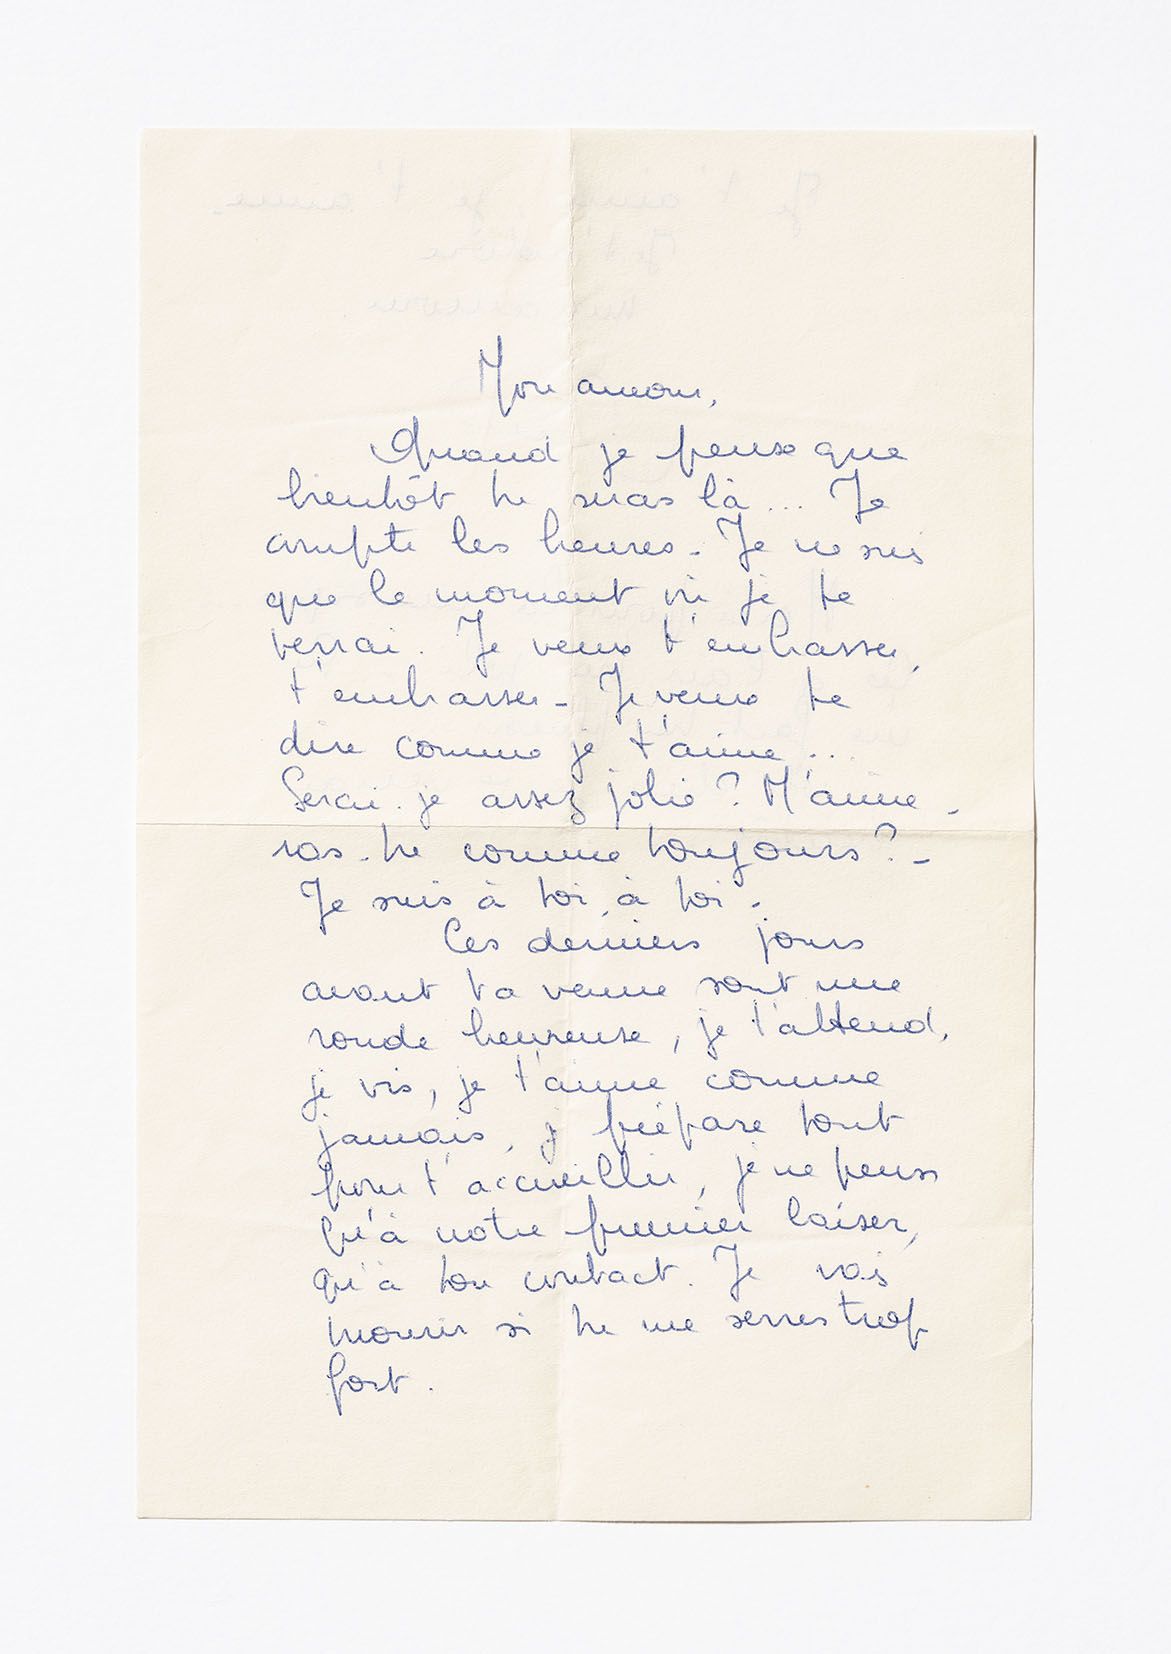 Mon amour,
Quand je pense que
bientôt tu seras là... Je
compte les heures - Je ne suis
que le moment où je te
verrai. Je veux t'embrasser,
t'embrasser - Je veux te
dire comme je t'aime...
Serai-je assez jolie? M'aime-
ras-tu comme toujours? -
Je suis à toi, à toi.
Ces derniers jours
avant ta venue sont une
ronde heureuse, je t'attend,
je vis, je t'aime comme
jamais, je prépare tout
pour t'accueillir, je ne pense
qu'à notre premier baiser,
qu'à ton contact. Je vais
mourir si tu me serres trop
fort.